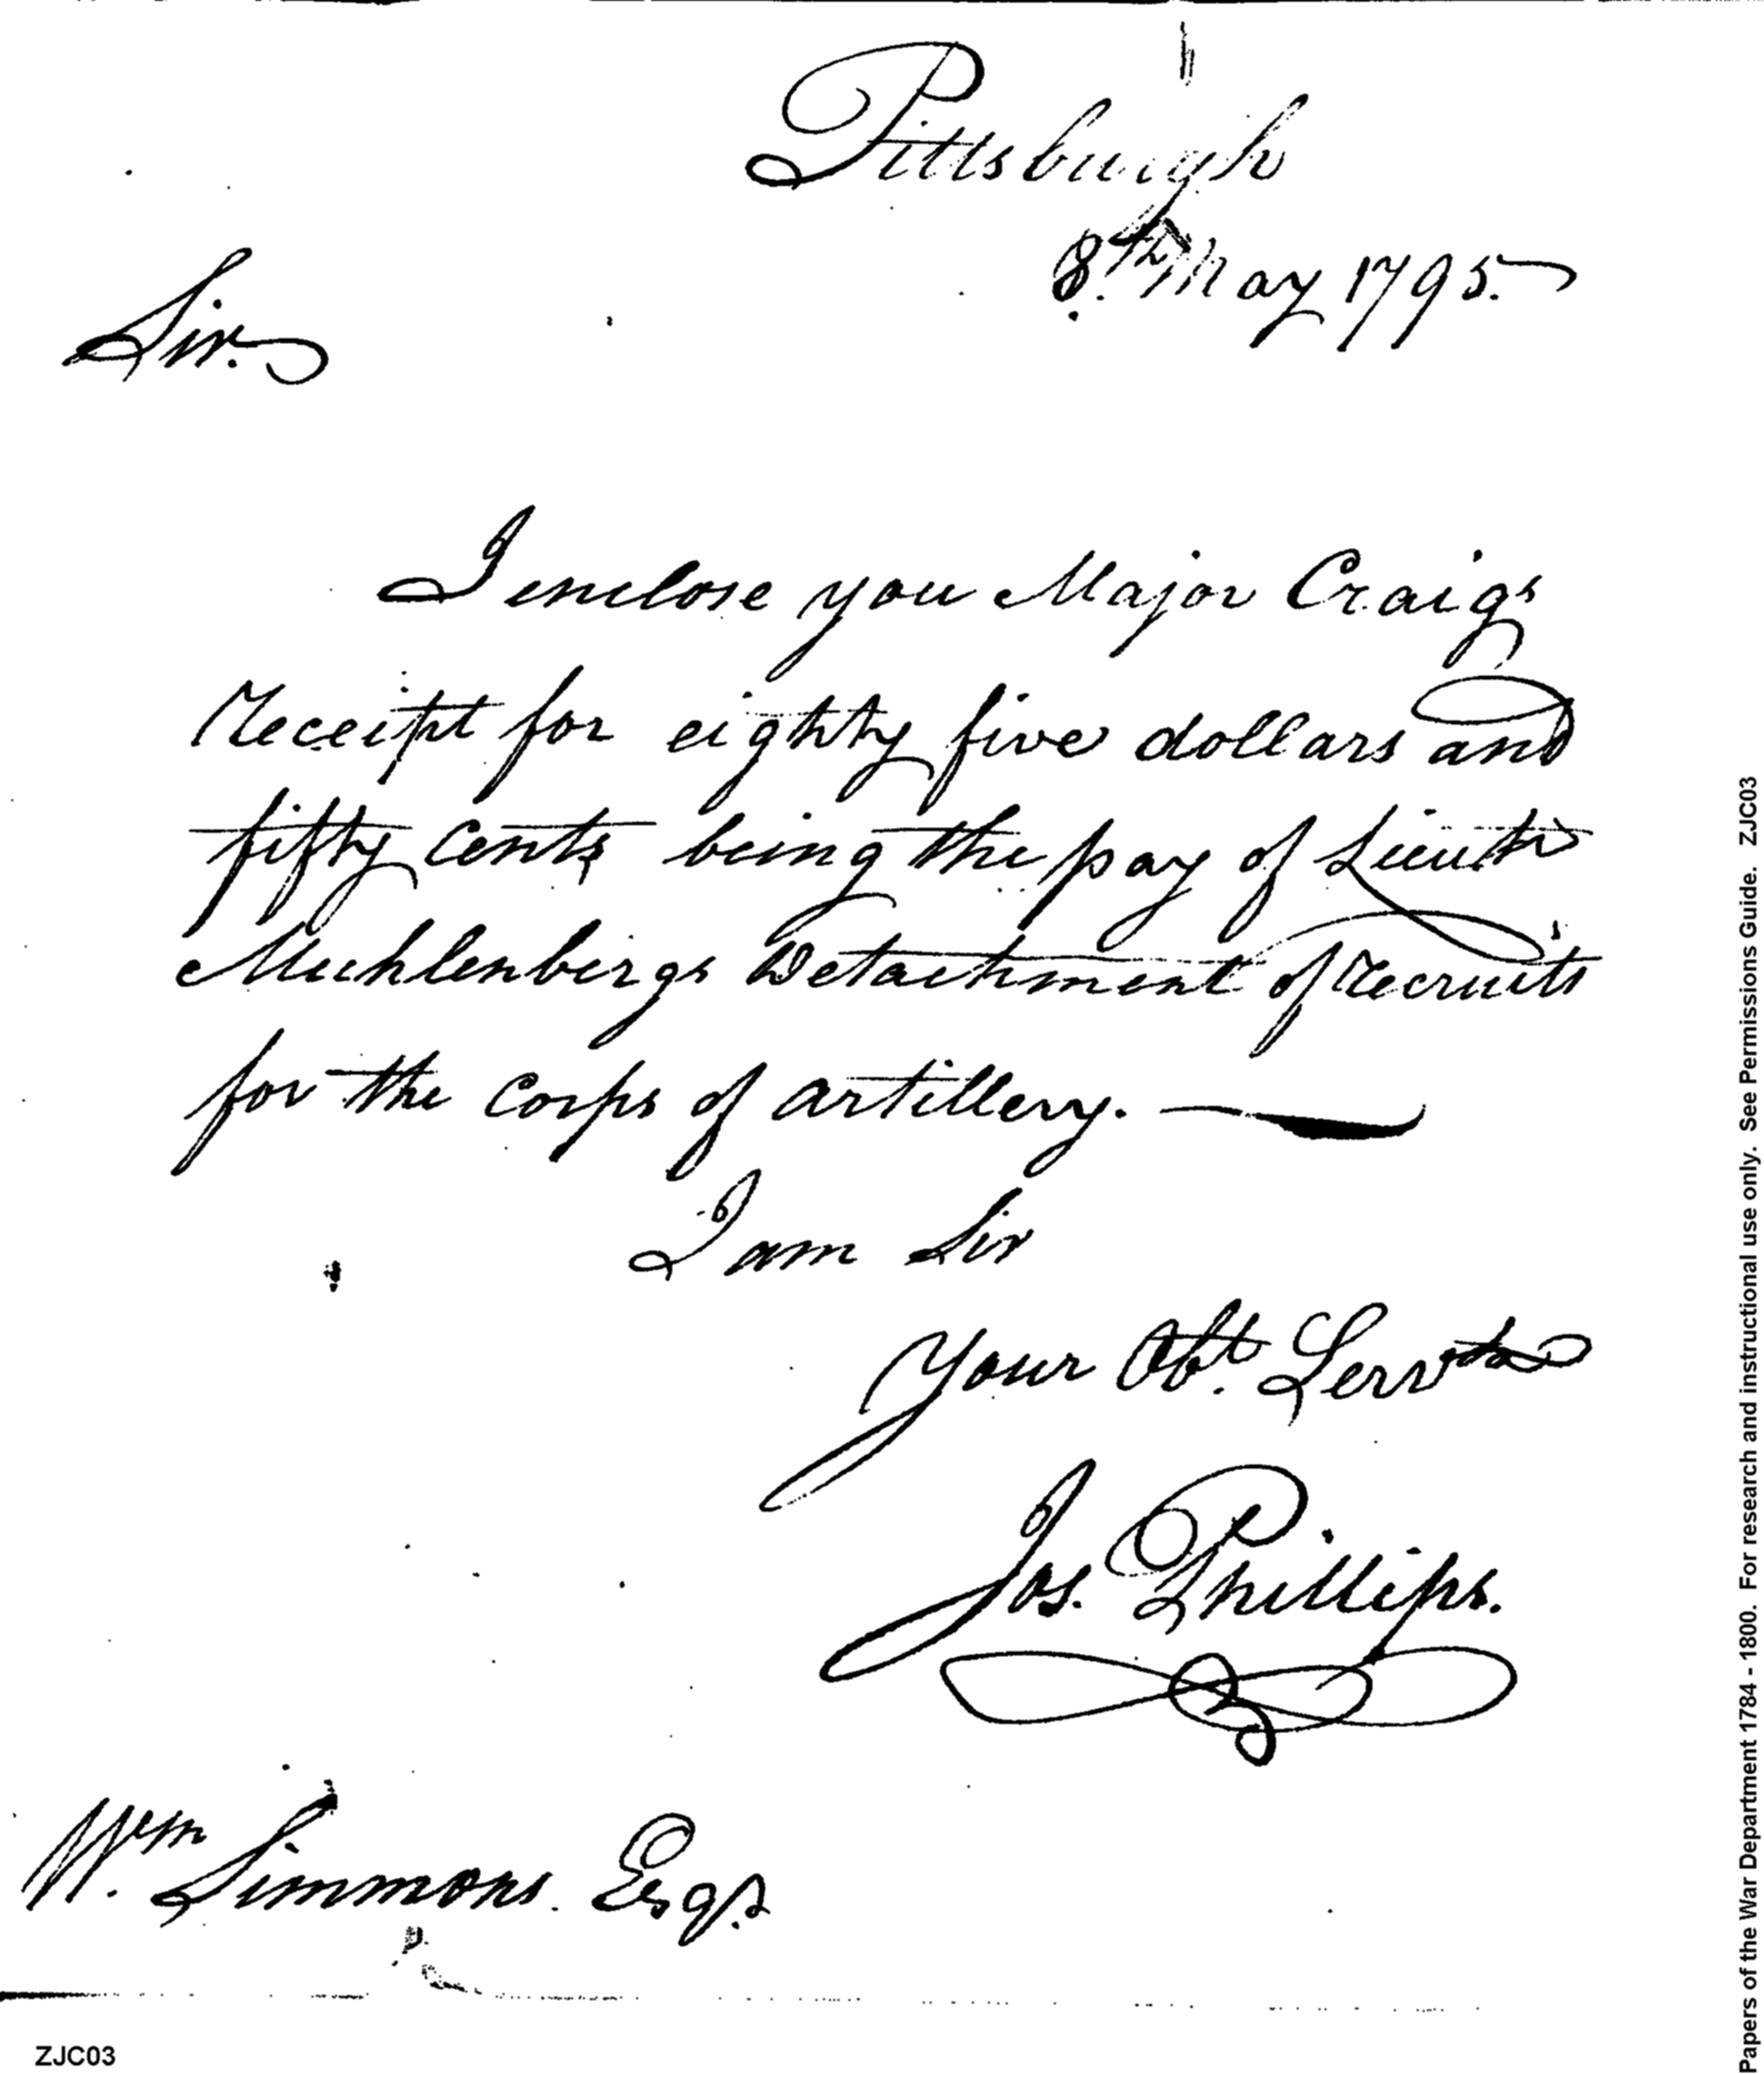 Pittsburgh
8th. May 1795.
Sir.
I enclose you Major Craigs
receipt for eighty five dollars and
fifty Cents being the pay of Lieutt
Muhlenbergs Detachment of recruits
for the Corps of artillery.
I am Sir
Your Obt. Servt
Jos. Phillips.
Wm. Simmons. Esqr.
ZJC03
Papers of the War Department 1784 - 1800. For research and instructional use only. See Permissions Guide. ZJC03